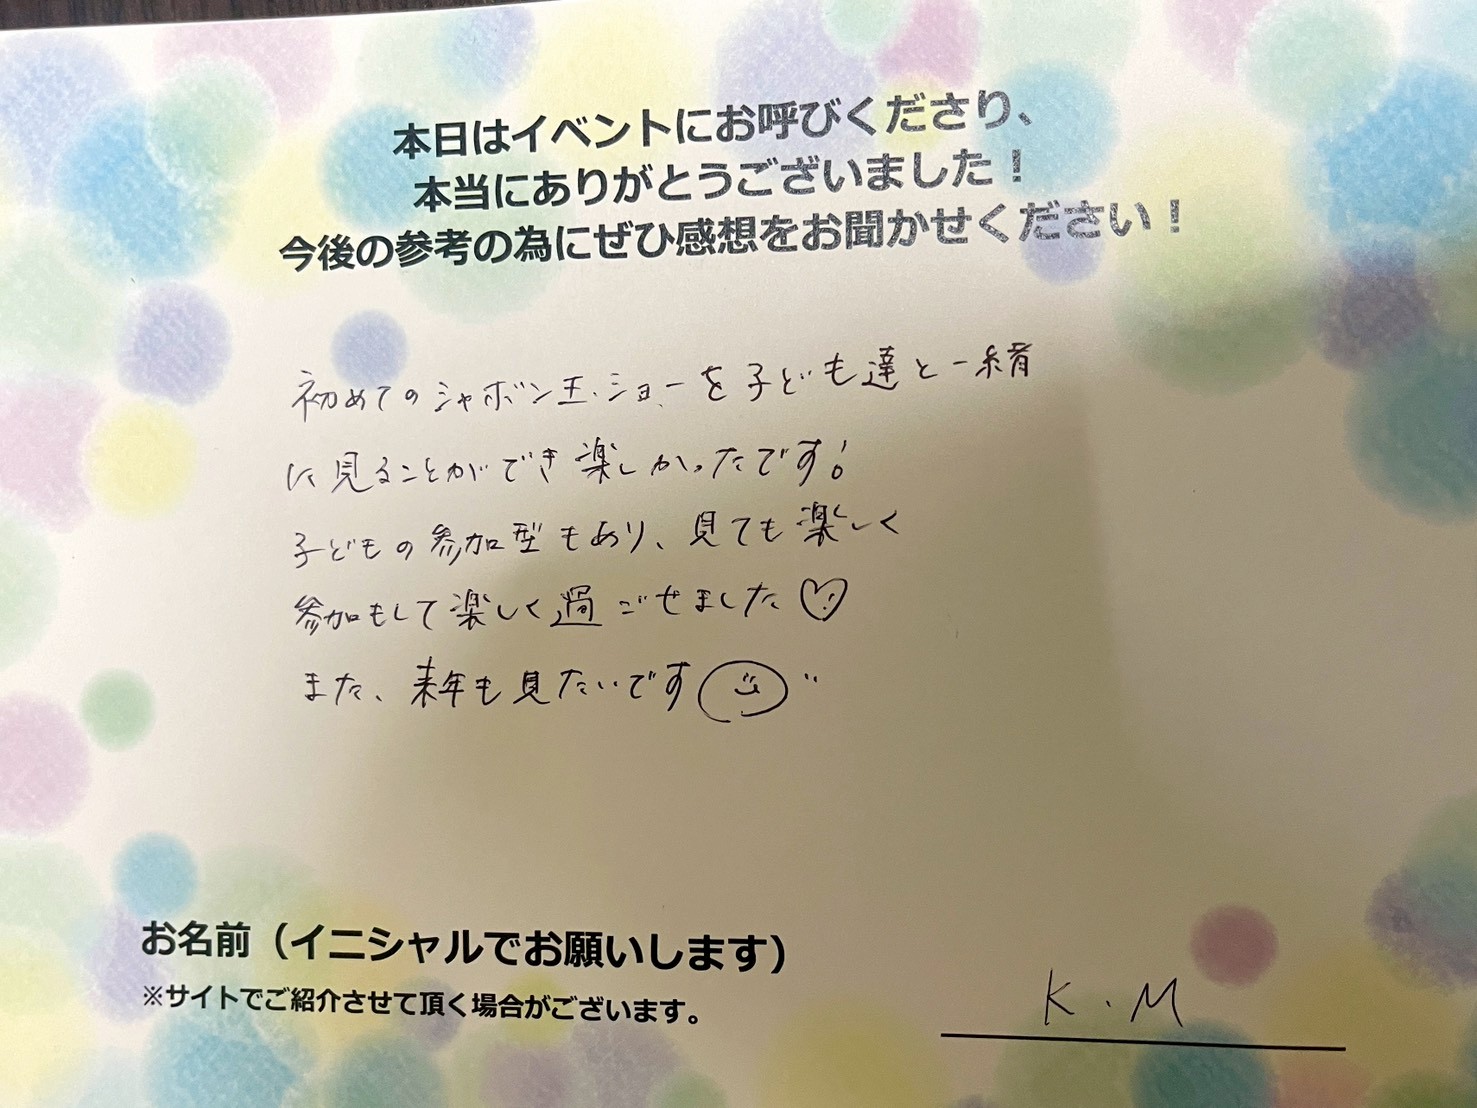 本日はイベントにお呼びくださり、
本当にありがとうございました！
今後の参考の為にぜひ感想をお聞かせください！
初めてのシャボン玉・ショーを子ども達と一緒
に見ることができ楽しかったです!
子どもの参加型もあり、見ても楽しく
参加もして楽しく過ごせました♡
また、来年も見たいです
お名前（イニシャルでお願いします）
※サイトでご紹介させて頂く場合がございます。
K.M